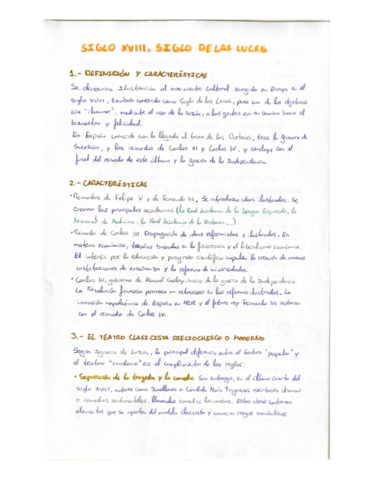 SIGLO XVIII. SIGLO DE LAS LUCES
1.- DEFINICIÓN Y CARACTERÍSTICAS
Se denomina Ilustración al movimiento cultural surgido en Europa en el
siglo XVIII, también conocido como Siglo de las Luces, pues uno de los objetivos
era "iluminar", mediante el uso de la razón, a las gentes en su camino hacia el
bienestar y felicidad.
En España coincide con la llegada al trono de los Borbones, tras la Guerra de
Sucesión, y los reinados de Carlos III y Carlos IV, y concluye con el
final del reinado de este último y la guerra de la Independencia.
2.- CARACTERÍSTICAS
• Reinados de Felipe V y de Fernando VI. Se introducen ideas ilustradas. Se
crearon las principales academias (la Real Academia de la Lengua Española, la
Nacional de Medicina, la Real Academia de la Historia...)
• Reinado de Carlos III. Propagación de ideas reformistas e ilustradas. En
materia económica, basadas en la fisiocracia y el liberalismo económico.
El interés por la educación y progreso científico impulsa la creación de nuevas
instituciones de enseñanza y la reforma de universidades.
• Carlos IV, gobierno de Manuel Godoy, inicio de la guerra de la Independencia.
La Revolución francesa provoca un retroceso en las reformas ilustradas. La
invasión napoleónica de España en 1808 y el futuro rey Fernando VII acabaron
con el reinado de Carlos IV.
3.- EL TEATRO CLASICISTA DIECIOCHESCO O MODERNO
Según Ignacio de Luzán, la principal diferencia entre el teatro "popular" y
el teatro "moderno" es el cumplimiento de las reglas:
• Separación de la tragedia y la comedia. Sin embargo, en el último cuarto del
siglo XVIII, autores como Jovellanos o Cándido María Trigueros escribieron dramas
o comedias sentimentales, llamadas comedias lacrimosas. Estas obras contienen
elementos que se apartan del modelo clasicista y avanzan rasgos románticos.